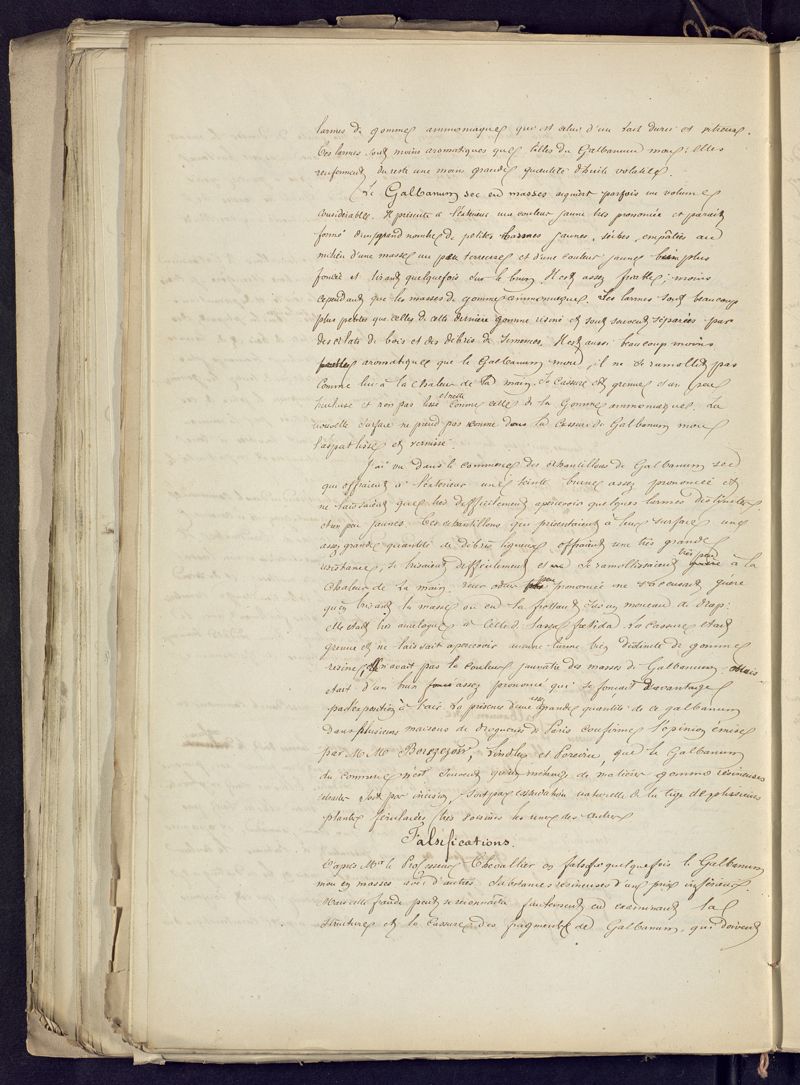 larmes de gommes ammoniaques qui est celui d'un lait durci et vitreux.
Ces larmes sont moins aromatiques que celles du Galbanum mou : elles
renferment du reste une moins grande quantité d'huile volatile.
Le Galbanum sec en masses acquiert parfois un volume
considérable. Il présente à l'extérieur une couleur jaune très prononcée et paraît
formé d'un grand nombre de petites larmes jaunes, sèches, empâtées au
milieu d'une masse un peu terreuse et d'une couleur jaune bien plus
foncée et tirant quelquefois sur le brun. Il est assez friable ; moins
cependant que les masses de gomme ammoniaque. Les larmes sont beaucoup
plus petites que celles de cette dernière gomme résine et sont souvent séparées par
des éclats de bois et des débris de semences. Il est aussi beaucoup moins
aromatique que le Galbanum mou, il ne se ramollit pas
comme lui à la chaleur de la main. Sa cassure est grenue et un peu
huileuse et non pas lisse et nette comme celle de la Gomme ammoniaque. La
nouvelle surface ne prend pas comme dans la cassure du Galbanum mou
l'aspect lisse et vernissé.
J'ai vu dans le commerce des échantillons de Galbanum sec
qui offraient à l'extérieur une teinte brune assez prononcée et
ne laissaient que très difficilement apercevoir quelques larmes distinctes
et un peu jaunes. Ces échantillons qui présentaient à leur surface une
assez grande quantité de débris ligneux offraient une très grande
résistance, se brisaient difficilement et se ramollissaient très peu à la
chaleur de la main. Leur odeur peu prononcée ne s'accusait guère
qu'en brisant la masse ou en la frottant sur un morceau de drap.
elle était très analogue à celle de l'assa foetida. La cassure était
grenue et ne laissait apercevoir aucune larme bien distincte de gomme
résine, elle n'avait pas la couleur jaunâtre des masses de Galbanum. Mais
était d'un brun assez prononcé qui se fonçait davantage
par l'exposition à l'air. La présence d'une assez grande quantité de ce galbanum
dans plusieurs maisons de droguerie de Paris confirme l'opinion émise
par M.M. Lindley et Pereira, que le Galbanum
du commerce n'est souvent qu'un mélange de matières gommo résineuses
soit par incision, soit par exsudation naturelle de la tige de plusieurs
plantes férulacées très voisines les unes des autres
Falsifications.
D'après Mr. le Professeur Chevallier on falsifie quelquefois le Galbanum
mou en masses avec d'autres substances résineuses d'un prix inférieur.
Mais cette fraude peut se reconnaître facilement en examinant la
structure et la cassure des fragments de Galbanum, qui doivent